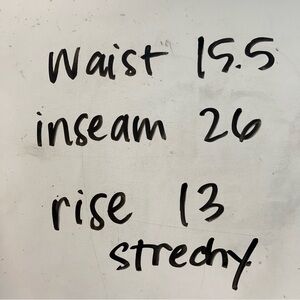 waist 15.5
inseam 26
rise 13
strechy